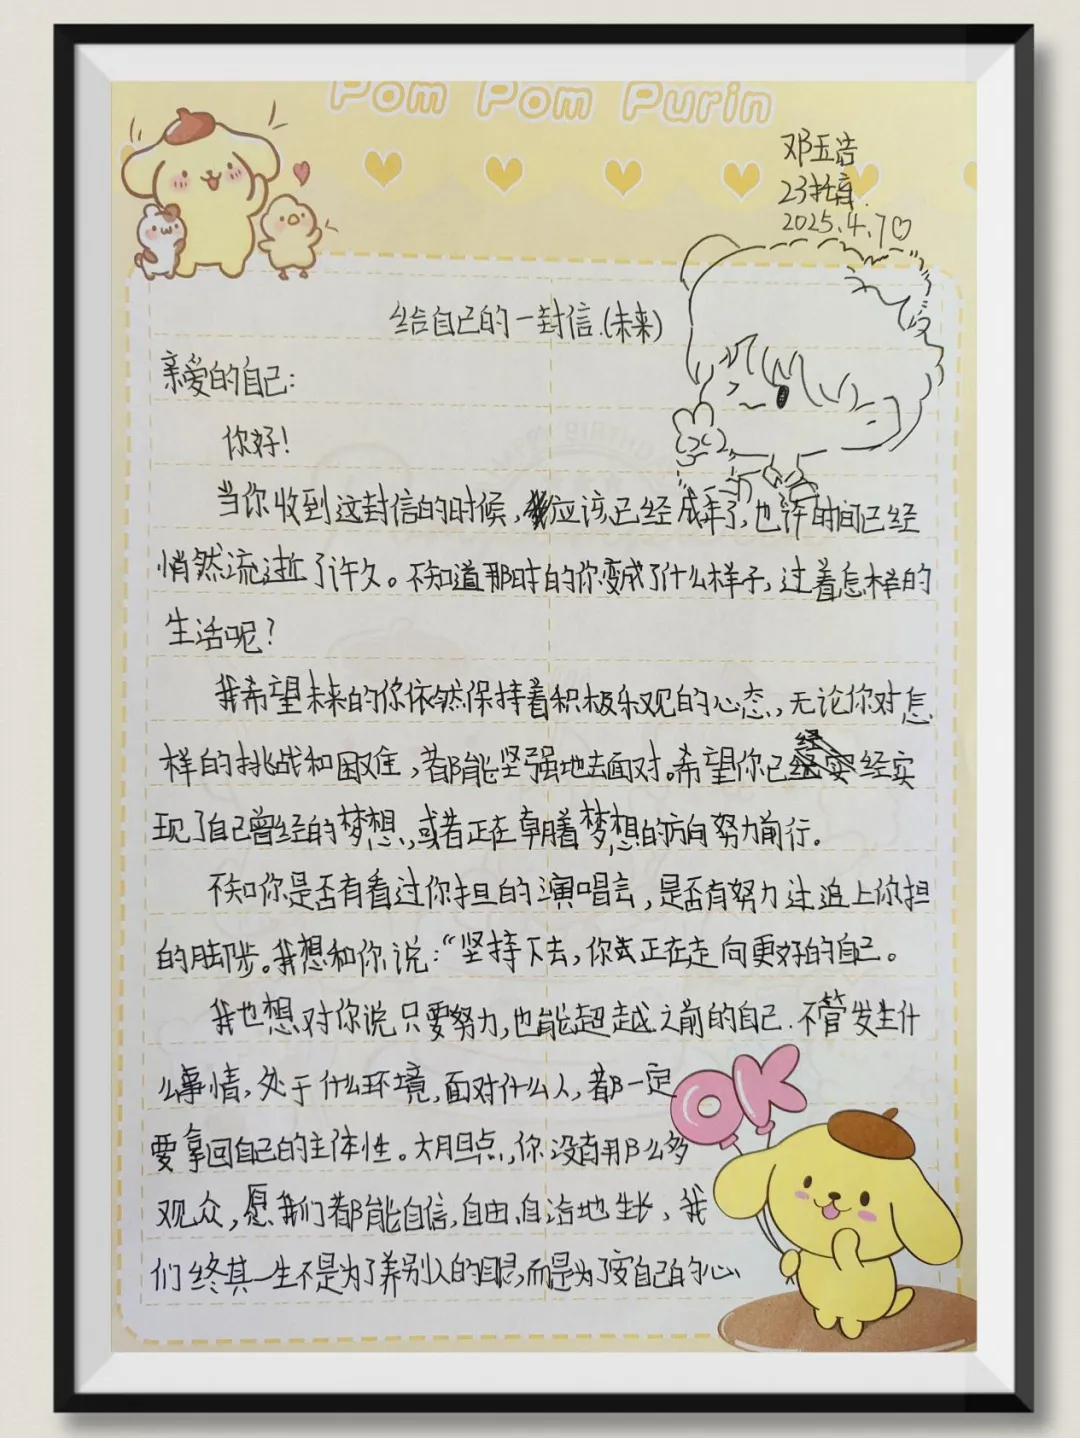 Pom Pom Purin
邓五浩
23托育.
2025.4.7
给自己的一封信.(未来)
亲爱的自己:
你好!
当你收到这封信的时候,应该已经成年了,也许时间已经
悄然流逝了许久。不知道那时的你变成了什么样子,过着怎样的
生活呢?
我希望未来的你依然保持着积极乐观的心态,无论你对怎
样的挑战和困难,都能坚强地去面对。希望你已经实
现了自己曾经的梦想,或者正在朝着梦想的方向努力前行。
不知你是否有看过你担的演唱会,是否有努力追上你担
的脚步。我想和你说:“坚持下去,你正在走向更好的自己。
我也想对你说只要努力,也能超越之前的自己.不管发生什
么事情,处于什么环境,面对什么人,都一定
要拿回自己的主体性。大胆点,你没有那么多
观众,愿我们都能自信,自由,自洽地生长,我
们终其一生不是为了养别人的眼,而是为了安自己的心
OK